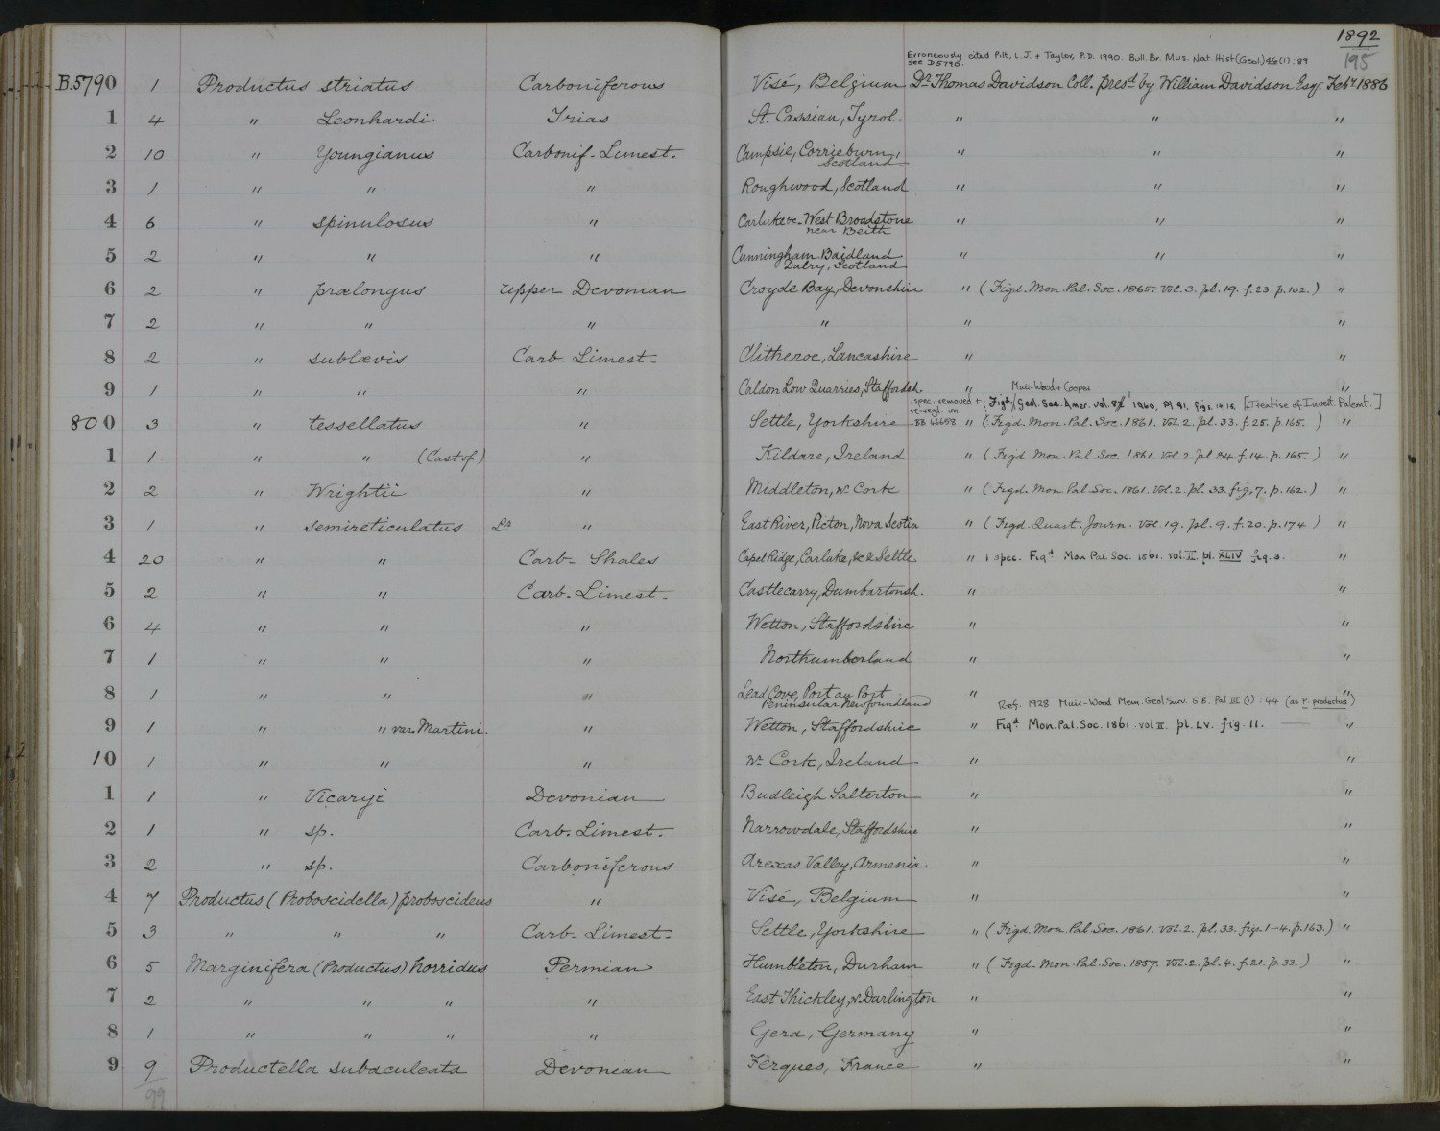 1892
195
Erroneously cited Pitt, L.J. + Taylor, P.D. 1990. Bull. Br. Mus. Nat Hist (Geol) 46 (1): 89
see D5790.
B.5790 1 Productus striatus Carboniferous Visé, Belgium Dr Thomas Davidson Coll. presd by William Davidson Esq: Feby 1886
1 4 " Leonhardi Trias St. Cassian, Tyrol. " " "
2 10 " Youngianus Carbonif. Limest. Campsie, Corrieburn, Scotland " " "
3 1 " " " Roughwood, Scotland " " "
4 6 " spinulosus " Carluke &c. West Broadstone near Beith " " "
5 2 " " " Cunningham Baidland Dalry, Scotland " " "
6 2 " prælongus Upper Devonian Croyde Bay, Devonshire " (Figd. Mon. Pal. Soc. 1865. Vol. 3. pl. 19. f. 23 p. 102.) "
7 2 " " " " " "
8 2 " sublævis Carb Limest. Clitheroe, Lancashire " "
9 1 " " " Caldon Low Quarries, Staffordsh. " "
Muir-Wood + Cooper
spec. removed + re-regd. on BB Figd Geol. Soc. Amer. vol. 1960, Pl 91, figs [Treatise of Invert. Palaeont.]
800 3 " tessellatus " Settle, Yorkshire " (Figd. Mon. Pal. Soc. 1861. Vol. 2. pl. 33. f. 25. p. 165.) "
1 1 " " (Cast of) " Kildare, Ireland " (Figd Mon. Pal Soc. 1861. Vol 2 pl 34. f. 14. p. 165.) "
2 2 " Wrightii " Middleton, nr Cork " (Figd. Mon. Pal. Soc. 1861. Vol. 2. pl. 33. fig. 7. p. 162.) "
3 1 " semireticulatus Lr " East River, Picton, Nova Scotia " (Figd. Quart. Journ. Vol. 19. pl. 9. f. 20. p. 174) "
4 20 " " Carb- Shales Capel Ridge, Carluke, &c & Settle " 1 spec. Figd Mon Pal. Soc. 1861. vol. II. pl. XLIV fig. 3. "
5 2 " " Carb. Limest. Castlecarry, Dumbartonsh. " "
6 4 " " " Wetton, Staffordshire " "
7 1 " " " Northumberland " "
8 1 " " " Lead Cove, Port au Port Peninsular Newfoundland " "
Ref. 1928 Muir-Wood Mem. Geol Surv. G.B. Pal III (1): 44 (as P. productus)
9 1 " " var. Martini. " Wetton, Staffordshire " Figd Mon. Pal. Soc. 1861 vol II. pl. LV. fig. 11. "
10 1 " " " nr Cork, Ireland " "
1 1 " Vicaryi Devonian Budleigh Salterton " "
2 1 " sp. Carb. Limest. Narrowdale, Staffordshire " "
3 2 " sp. Carboniferous Arexas Valley, Armenia. " "
4 7 Productus (Proboscidella) proboscideus " Visé, Belgium " "
5 3 " " " Carb. Limest. Settle, Yorkshire " (Figd. Mon. Pal. Soc. 1861. Vol. 2. pl. 33. figs. 1-4. p. 163.) "
6 5 Marginifera (Productus) horridus Permian Humbleton, Durham " (Figd. Mon. Pal. Soc. 1857. Vol. 2. pl. 4. f. 21. p. 33) "
7 2 " " " " East Thickley, nr Darlington " "
8 1 " " " " Gera, Germany " "
9 9 Productella subaculeata Devonian Ferques, France " "
99